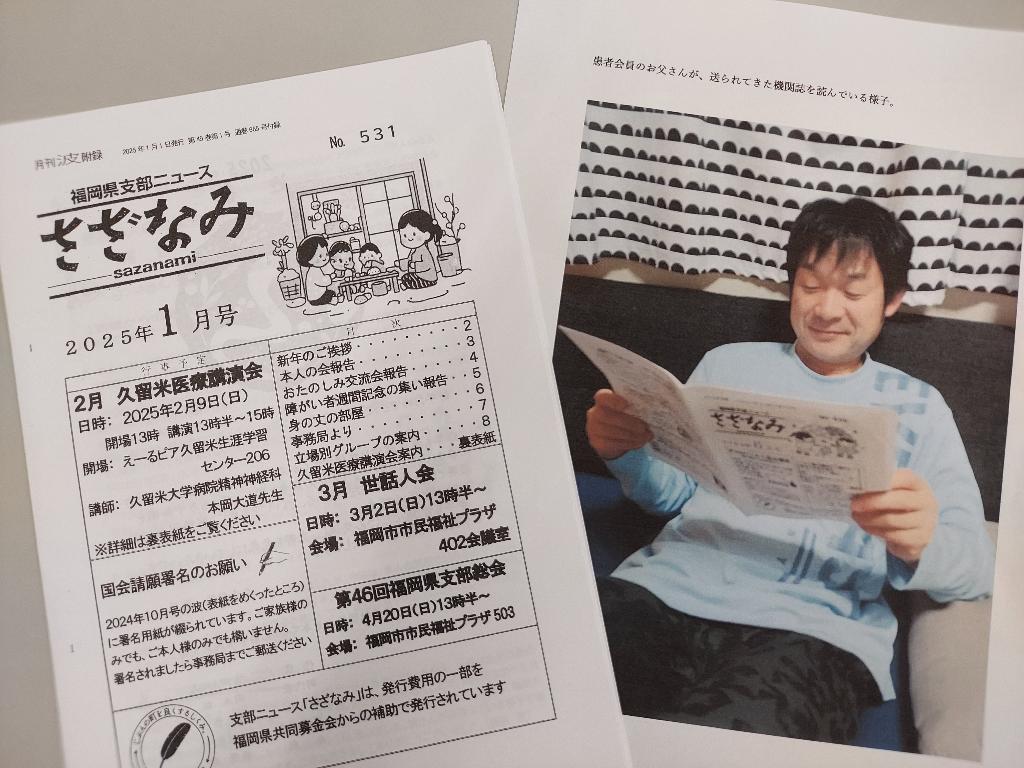 月刊 波 附録
2025年1月1日発行 第45巻第1号 通巻655号付録
No. 531
福岡県支部ニュース
さざなみ
sazanami
2025年1月号
行事予定
2月 久留米医療講演会
日時: 2025年2月9日(日)
開場13時 講演13時半～15時
開場: えーるピア久留米生涯学習
センター206
講師: 久留米大学病院精神神経科
本岡大道先生
※詳細は裏表紙をご覧ください
国会請願署名のお願い
2024年10月号の波(表紙をめくったところ)
に署名用紙が綴られています。ご家族様の
みでも、ご本人様のみでも構いません。
署名されましたら事務局までご郵送ください
目次
新年のご挨拶・・・・・・・・・2
本人の会報告・・・・・・・・・3
おたのしみ交流会報告・・・・・4
障がい者週間記念の集い報告・・5
身の丈の部屋・・・・・・・・・6
事務局より・・・・・・・・・・7
立場別グループの案内・・・・・8
久留米医療講演会案内・・・裏表紙
3月 世話人会
日時: 3月2日(日)13時半～
会場: 福岡市市民福祉プラザ
402会議室
第46回福岡県支部総会
日時: 4月20日(日)13時半～
会場: 福岡市市民福祉プラザ 503
じぶんの町を良くするしくみ。
支部ニュース「さざなみ」は、発行費用の一部を
福岡県共同募金会からの補助で発行されています
患者会員のお父さんが、送られてきた機関誌を読んでいる様子。
さざなみ